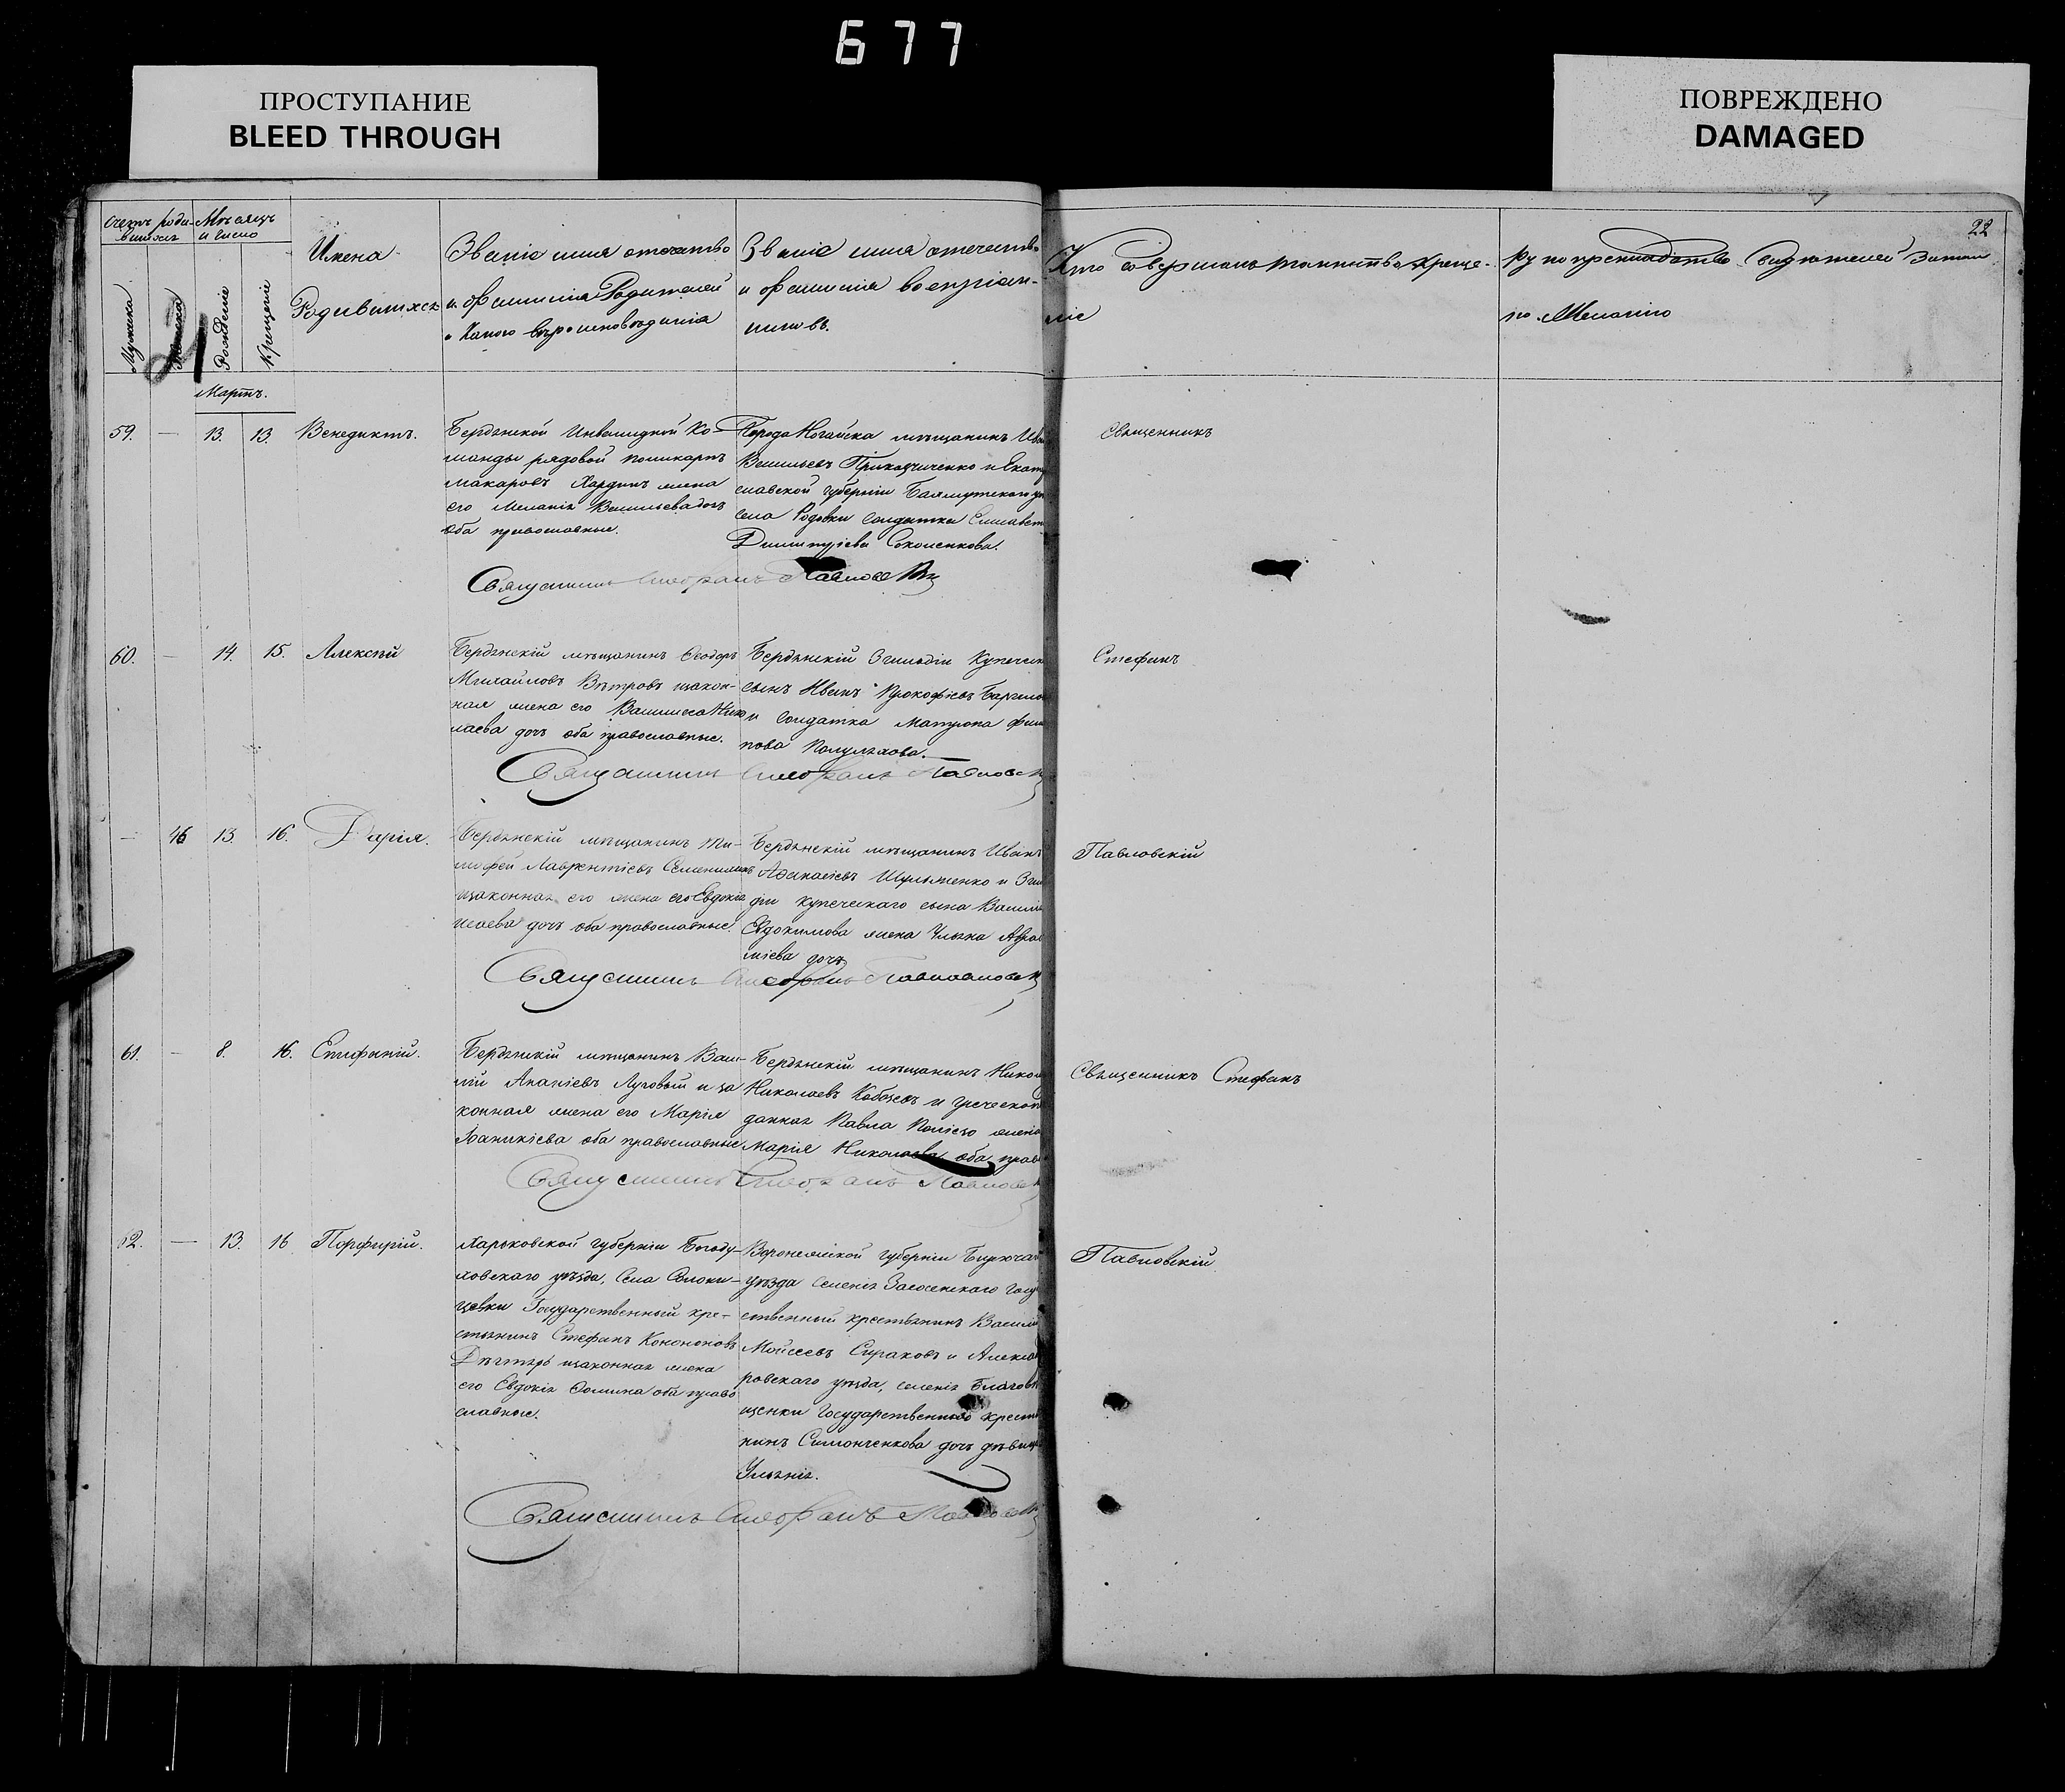 677
ПРОСТУПАНИЕ
BLEED THROUGH
ПОВРЕЖДЕНО
DAMAGED
22
Счетъ роди-
вшихся
Мѣсяцъ
и число
Мужска
Женска
Рожденіе
Крещеніе
21
Имена
Родившихся
Званіе имя отечество
и фамилія Родителей
и какого вѣроисповѣданія
Званіе имя отечество
и фамилія воспріем-
никовъ.
Кто совершалъ таинство Креще-
ніе
Рукоприкладство свидѣтелей записи
по Желанію
Мартъ.
59. — 13. 13. Венедиктъ.
Бердянской Инвалидной Ко-
манды рядовой Поликарпъ
Макаровъ Хардинъ жена
его Меланія Васильева дочь
оба православные.
Города Ногайска мѣщанинъ Ив
Васильевъ Приходченко и Екат
славской губерніи Бахмутскаго у
села солдатка Елисавет
Димитріева Соколенкова.
Священникъ Стефанъ Павловск
Священникъ
60. — 14. 15. Алексѣй
Бердянскій мѣщанинъ Ѳеодоръ
Михайловъ Вѣтровъ и закон-
ная жена его Василиса Нико
лаева дочь оба православные.
Бердянскій 3 гильдіи Купечес
сынъ Иванъ Прокофіевъ
и солдатка Матрона Фил
пова Полуляхова.
Священникъ Стефанъ Павловск
Стефанъ
— 46 13. 16. Дарія.
Бердянскій мѣщанинъ Ти-
мофей Лаврентіевъ
и законная его жена его Евдокія
Исаева дочь оба православные.
Бердянскій мѣщанинъ Иванъ
Аѳанасіевъ Шульженко и 3 гил
діи купеческаго сына Васил
Евдокимова жена Ульяна
міева дочь
Священникъ Стефанъ
Павловскій
61. — 8. 16. Епифаній.
Бердянскій мѣщанинъ Васи-
лій Ананіевъ Луговый и за
конная жена его Марія
Іоаникіева оба православные
Бердянскій мѣщанинъ Никол
Николаевъ Кобцевъ и греческоп
даннаг Павла жена
Марія Николаева оба прав
Священникъ Стефанъ Павловск
Священникъ Стефанъ
62. — 13. 16 Порфирій.
Харьковской губерніи Богоду-
ховскаго уѣзда, села
Государственный кре-
стьянинъ Стефанъ Кононовъ
Дѣгтярь и законная жена
его Евдокія Ѳомина оба право
славные.
Воронежской губерніи Бирюча
уѣзда селенія Засосенскаго Госу
ственный крестьянинъ Василі
Мойсеевъ Сираковъ и Алекса
ровскаго уѣзда, селенія Благов
щенки Государственнаго крест
нинъ Симонченкова дочь дѣвиц
Ульянія.
Священникъ Стефанъ Павловск
Павловскій